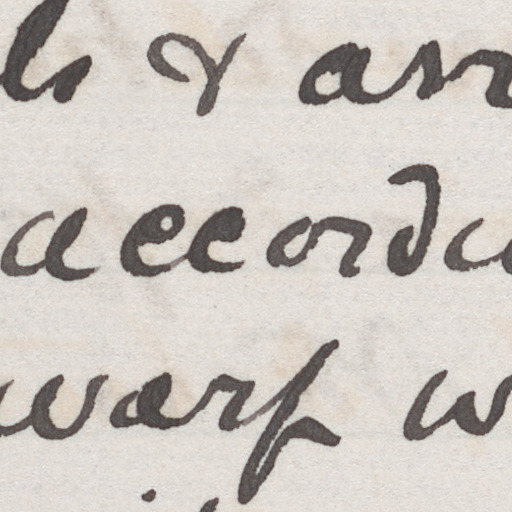 ls & an
accorda
warf w